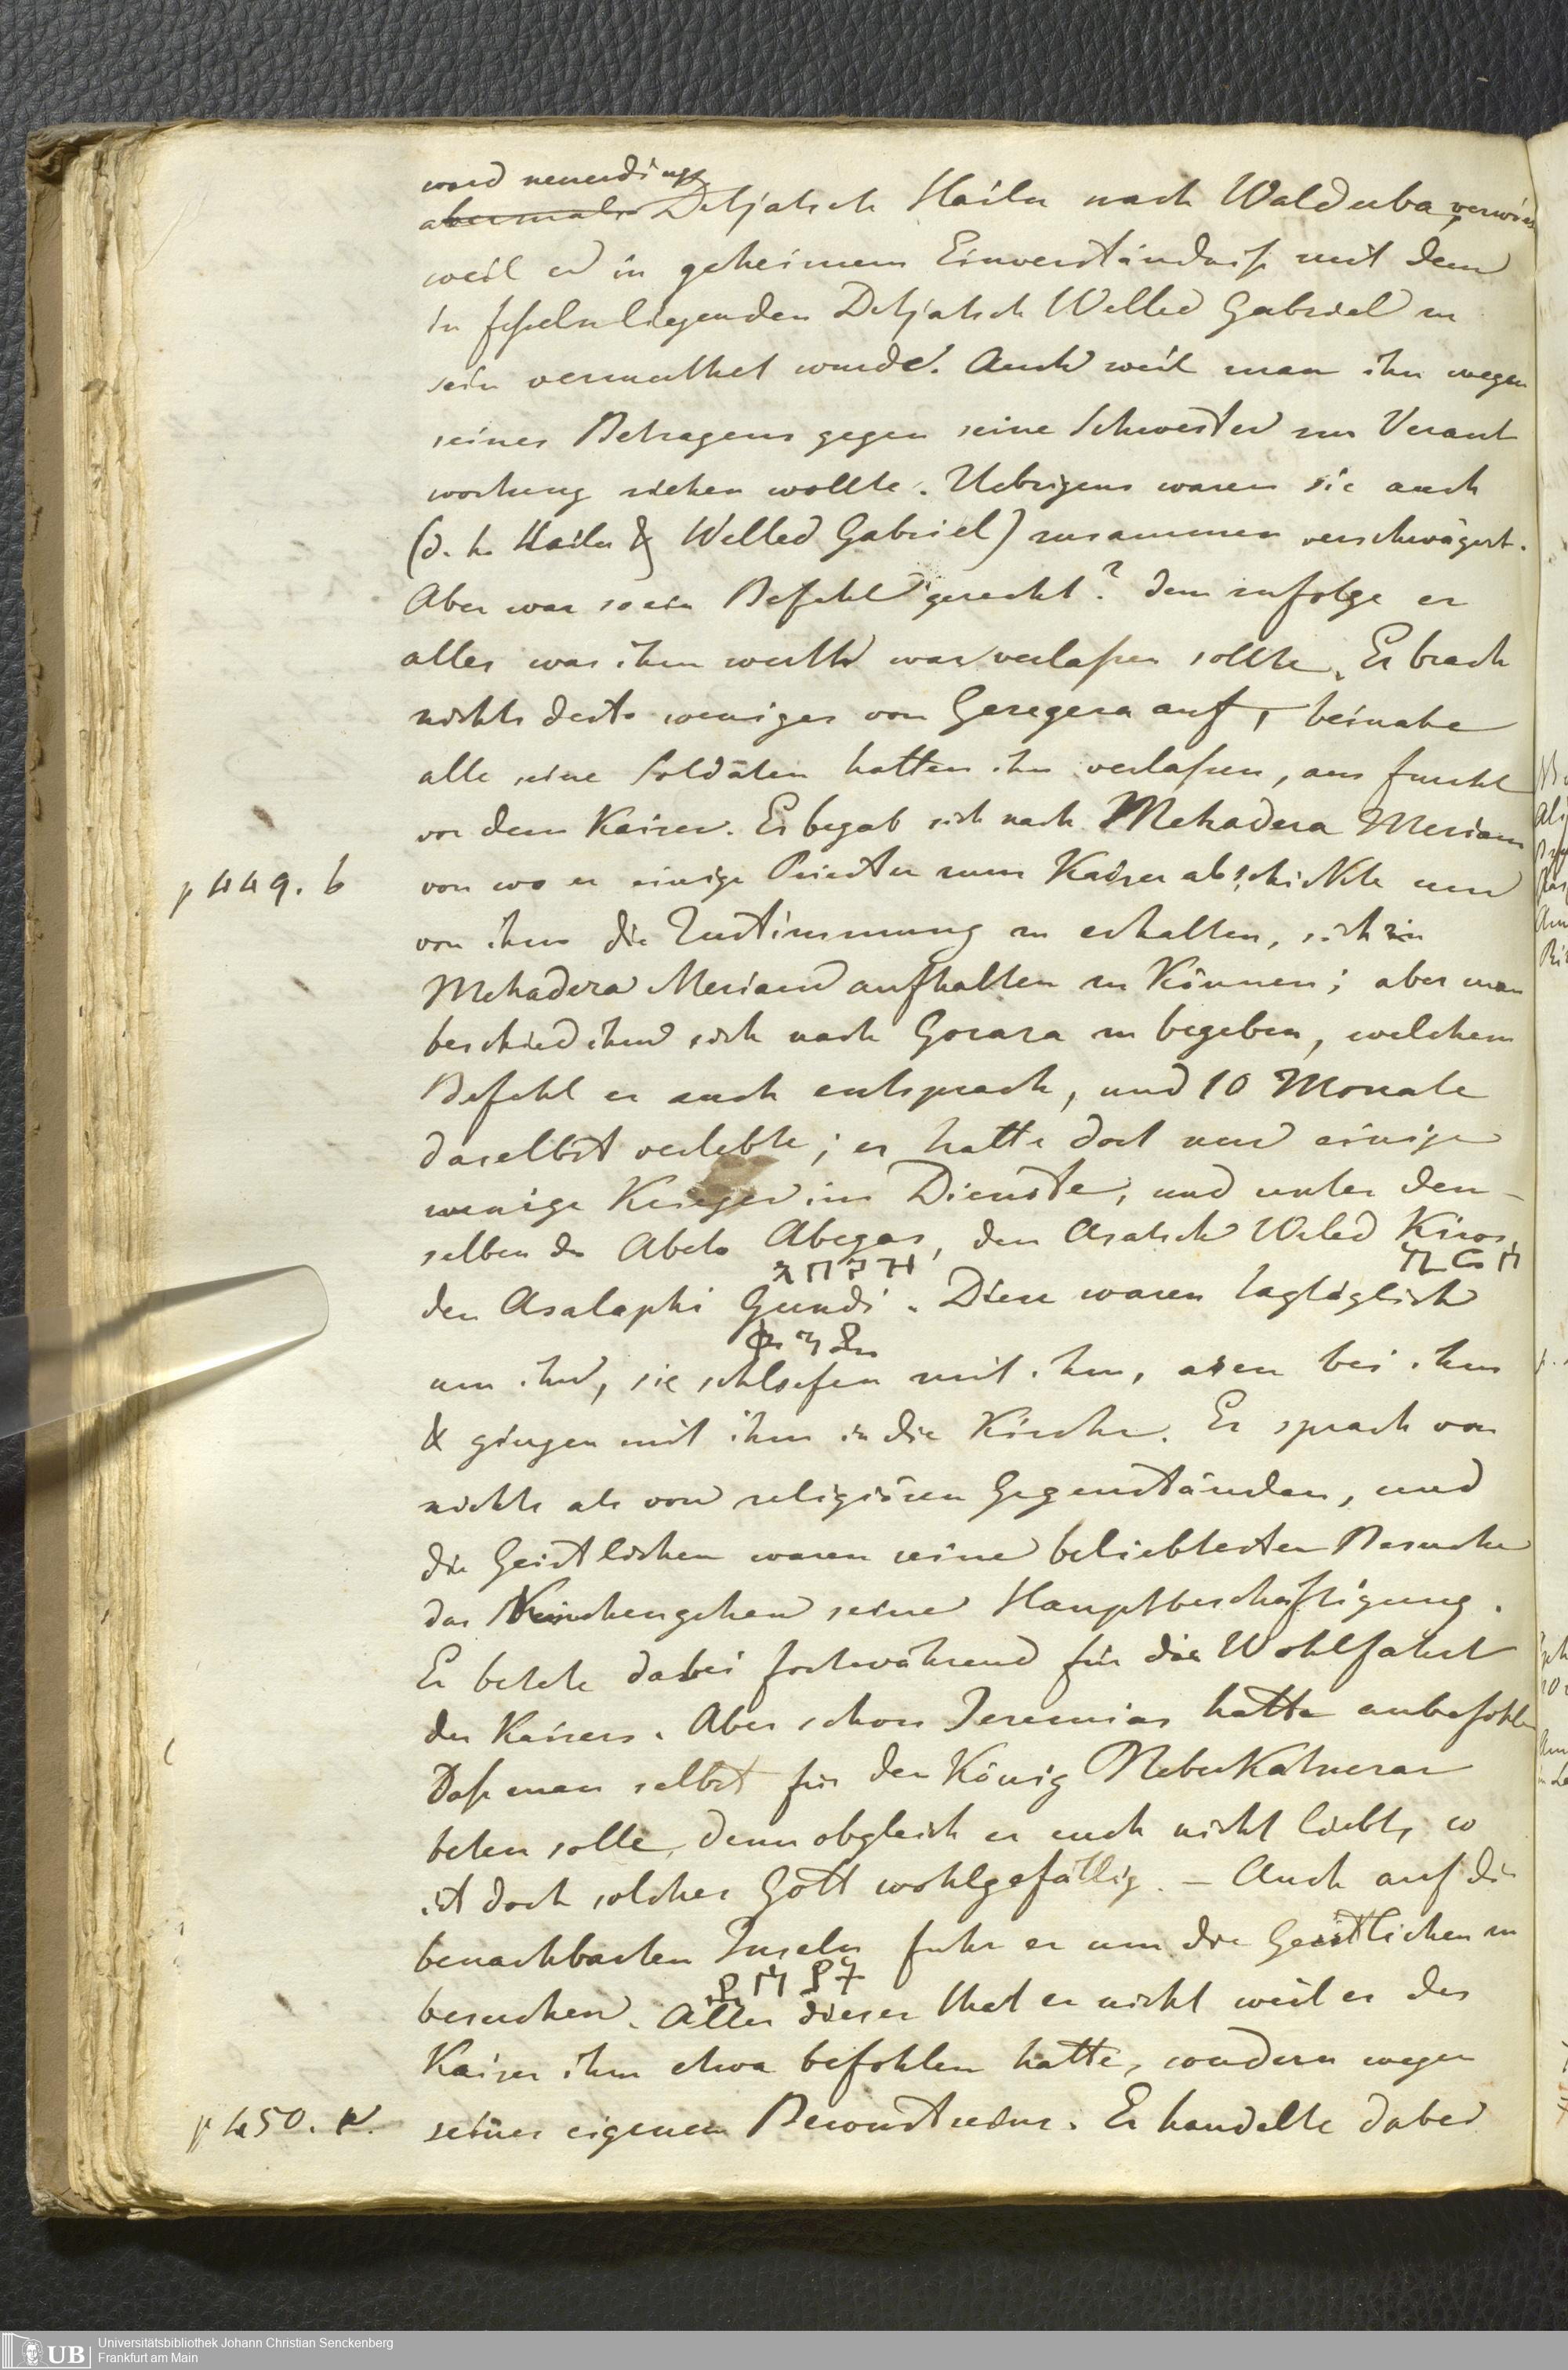 ward neuerdings
abermals Detjatsch Hailu nach Walduba verwies
weil er in geheimem Einverständniß mit dem
in feßeln liegenden Detjatsch Welled Gabriel zu
sein vermuthet wurde. Auch weil man ihn wegen
seines Betragens gegen seine Schwester zur Verant
wortung ziehen wollte. Uebrigens waren sie auch
(d. h. Hailu & Welled Gabriel) zusammen verschwägert.
Aber war so ein Befehl gerecht? dem zufolge er
alles was ihm werth war verlaßen sollte. Er brach
nichts desto weniger von Geregera auf, beinahe
alle seine Soldaten hatten ihn verlaßen, aus furcht
vor dem Kaiser. Er begab sich nach Mehadera Meriam
p 449. b von wo er einige Priester zum Kaiser abschickte um
von ihm die Zustimmung zu erhalten, sich in
Mehadera Meriam aufhalten zu können; aber man
beschied ihm sich nach Gorara zu begeben, welchem
Befehl er auch entsprach, und 10 Monate
daselbst verlebte; er hatte dort nur einige
wenige Krieger im Dienste, und unter den-
selben den Abeto Abegas, den Asatsch Weled Kiros,
አበጋዝ ኪሮስ
den Asalaphi Gundi. Diese waren tagtäglich
ቡንዲ
um ihn, sie schliefen mit ihm, asen bei ihm
& gingen mit ihm in die Kirche. Er sprach von
nichts als von religiösen Gegenständen, und
die Geistlichen waren seine beliebtesten Besuche
das Kirchengehen seine Hauptbeschäftigung.
Er betete dabei fortwährend für die Wohlfahrt
des Kaisers. Aber schon Jeremias hatte anbefohlen
Daß man selbst für den König Nebukatnezar
beten solle, denn obgleich er euch nicht liebt, so
ist doch solches Gott wohlgefällig. – Auch auf die
benachbarten Inseln fuhr er um die Geistlichen zu
besuchen. Alles dieses that er nicht weil es der
Kaiser ihm etwa befohlen hatte, sondern wegen
p 450. a. seiner eigenen Bewustseins. Er handelte dabei
Universitätsbibliothek Johann Christian Senckenberg
Frankfurt am Main
UB